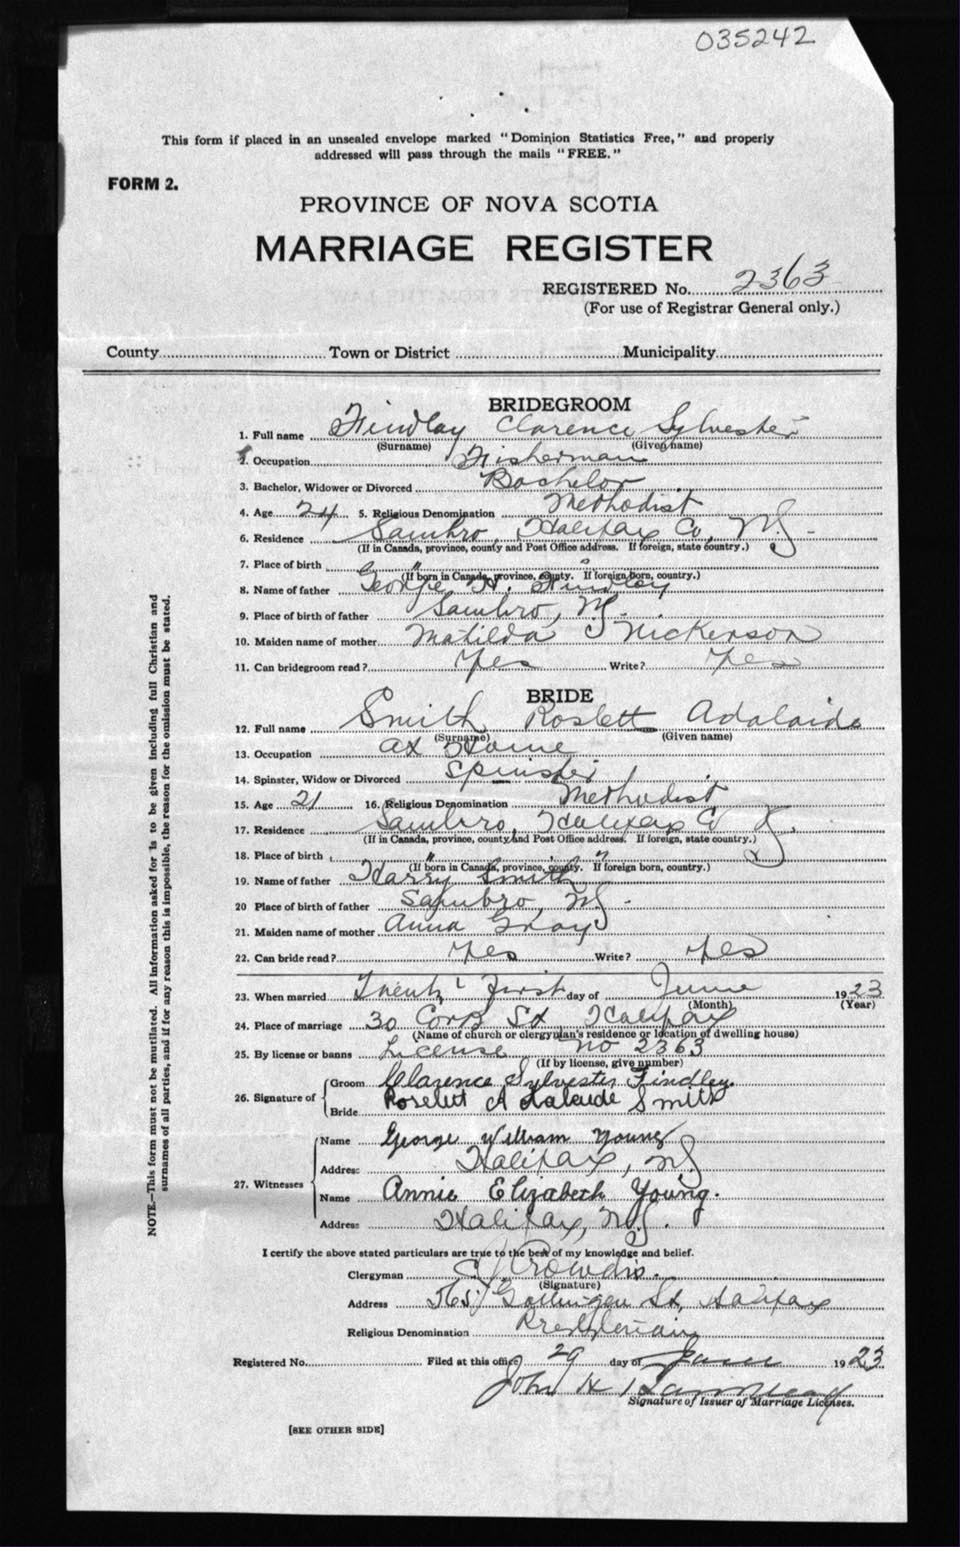 035242
This form if placed in an unsealed envelope marked "Dominion Statistics Free," and properly
addressed will pass through the mails "FREE."
FORM 2.
PROVINCE OF NOVA SCOTIA
MARRIAGE REGISTER
REGISTERED No. 2363
(For use of Registrar General only.)
County Town or District Municipality
BRIDEGROOM
1. Full name Findlay Clarence Sylvester
(Surname) (Given name)
2. Occupation Fisherman
3. Bachelor, Widower or Divorced Bachelor
4. Age 24 5. Religious Denomination Methodist
6. Residence Sambro, Halifax Co, NS
(If in Canada, province, county and Post Office address. If foreign, state country.)
7. Place of birth " "
(If born in Canada, province, county. If foreign born, country.)
8. Name of father George H. Findley
9. Place of birth of father Sambro, NS.
10. Maiden name of mother Matilda Nickerson
11. Can bridegroom read? Yes Write? Yes
BRIDE
12. Full name Smith Roslett Adalaide
(Surname) (Given name)
13. Occupation at Home
14. Spinster, Widow or Divorced Spinster
15. Age 21 16. Religious Denomination Methodist
17. Residence Sambro, Halifax Co
(If in Canada, province, county and Post Office address. If foreign, state country.)
18. Place of birth " "
(If born in Canada, province, county. If foreign born, country.)
19. Name of father Harry Smith
20 Place of birth of father Sambro, NS.
21. Maiden name of mother Anna Gray
22. Can bride read? Yes Write? Yes
23. When married Twenty First day of June 1923
(Month) (Year)
24. Place of marriage 30 Corn St Halifax
(Name of church or clergyman's residence or location of dwelling house)
25. By license or banns License no 2363
(If by license, give number)
26. Signature of Groom Clarence Sylvester Findley.
Bride Roselett Adalaide Smith
27. Witnesses
Name George William Young
Address Halifax, NS
Name Annie Elizabeth Young.
Address Halifax, N.S.
I certify the above stated particulars are true to the best of my knowledge and belief.
Clergyman Crowdis.
(Signature)
Address Gottingen St, Halifax
Religious Denomination Presbyterian
Registered No. Filed at this office 29 day of June 1923
John H
Signature of Issuer of Marriage Licenses.
[SEE OTHER SIDE]
NOTE.—This form must not be mutilated. All information asked for is to be given including full Christian and
surnames of all parties, and if for any reason this is impossible, the reason for the omission must be stated.